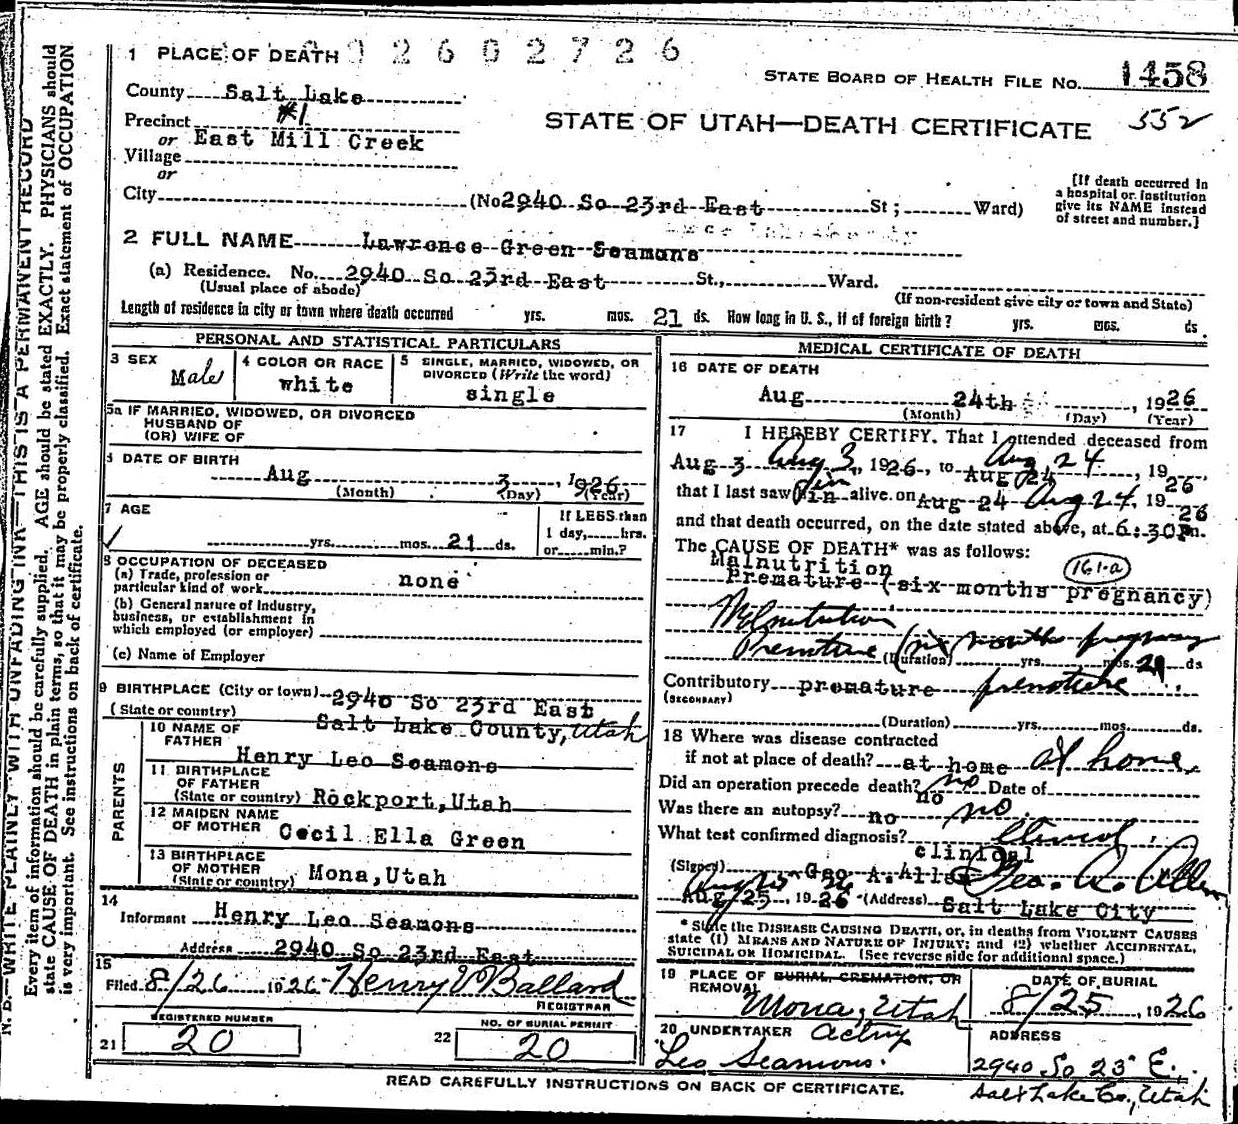 N. B.—WRITE PLAINLY WITH UNFADING INK—THIS IS A PERMANENT RECORD
Every item of information should be carefully supplied. AGE should be stated EXACTLY. PHYSICIANS should
state CAUSE OF DEATH in plain terms, so that it may be properly classified. Exact statement of OCCUPATION
is very important. See instructions on back of certificate.
1 PLACE OF DEATH 92602726
STATE BOARD OF HEALTH FILE No. 1458
County Salt Lake
552
STATE OF UTAH—DEATH CERTIFICATE
Precinct #1
or East Mill Creek
Village
or
City (No 2940 So 23rd East St; Ward)
[If death occurred in
a hospital or institution
give its NAME instead
of street and number.]
2 FULL NAME Lawrence Green Seamons
(a) Residence. No. 2940 So 23rd East St., Ward.
(Usual place of abode) (If non-resident give city or town and State)
Length of residence in city or town where death occurred yrs. mos. 21 ds. How long in U. S., if of foreign birth? yrs. mos. ds.
PERSONAL AND STATISTICAL PARTICULARS
3 SEX Male
4 COLOR OR RACE white
5 SINGLE, MARRIED, WIDOWED, OR
DIVORCED (Write the word)
single
5a IF MARRIED, WIDOWED, OR DIVORCED
HUSBAND OF
(OR) WIFE OF
6 DATE OF BIRTH
Aug 3, 1926
(Month) (Day) (Year)
7 AGE
yrs. mos. 21 ds.
If LESS than
1 day, hrs.
or min.?
8 OCCUPATION OF DECEASED
(a) Trade, profession or
particular kind of work none
(b) General nature of Industry,
business, or establishment in
which employed (or employer)
(c) Name of Employer
9 BIRTHPLACE (City or town) 2940 So 23rd East
(State or country) Salt Lake County, Utah
PARENTS
10 NAME OF
FATHER Henry Leo Seamons
11 BIRTHPLACE
OF FATHER
(State or country) Rockport, Utah
12 MAIDEN NAME
OF MOTHER Cecil Ella Green
13 BIRTHPLACE
OF MOTHER
(State or country) Mona, Utah
14
Informant Henry Leo Seamons
Address 2940 So 23rd East
15
Filed 8/26 1926 Henry V Ballard
REGISTRAR
REGISTERED NUMBER
21 20
NO. OF BURIAL PERMIT
22 20
MEDICAL CERTIFICATE OF DEATH
16 DATE OF DEATH
Aug 24th, 1926
(Month) (Day) (Year)
17 I HEREBY CERTIFY. That I attended deceased from
Aug 3 Aug 3, 1926, to Aug 24 Aug 24, 1926
that I last saw him alive on Aug 24 Aug 24, 1926
and that death occurred, on the date stated above, at 6:30Pm.
The CAUSE OF DEATH* was as follows:
Malnutrition
Premature (six months pregnancy)
161-a
Malnutrition
Premature (six months pregnancy
(Duration) yrs. mos. 21 ds
Contributory premature premature
(SECONDARY)
(Duration) yrs. mos. ds.
18 Where was disease contracted
if not at place of death? at home at home
Did an operation precede death? no no Date of
Was there an autopsy? no no
What test confirmed diagnosis? clinical Clinical
(Signed) Geo A. Allen Geo. A. Allen
Aug 25 26
Aug 25, 1926 (Address) Salt Lake City
* State the DISEASE CAUSING DEATH, or, in deaths from VIOLENT CAUSES
state (1) MEANS AND NATURE OF INJURY; and (2) whether ACCIDENTAL,
SUICIDAL OR HOMICIDAL. (See reverse side for additional space.)
19 PLACE OF BURIAL, CREMATION, OR
REMOVAL
Mona, Utah
DATE OF BURIAL
8/25, 1926
20 UNDERTAKER Acting
Leo Seamons
ADDRESS
2940 So 23 E.
Salt Lake Co., Utah
READ CAREFULLY INSTRUCTIONS ON BACK OF CERTIFICATE.